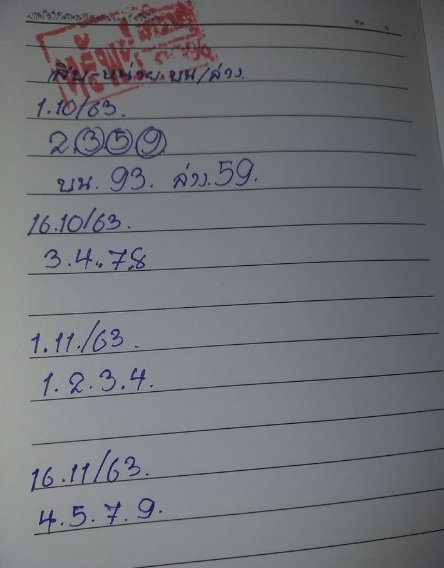 สิบ-หน่วย.บน/ล่าง.
1.10/63.
2.359.
บน. 93. ล่าง.59.
16.10/63.
3.4.7.8
1.11./63.
1.2.3.4.
16.11/63.
4.5.7.9.